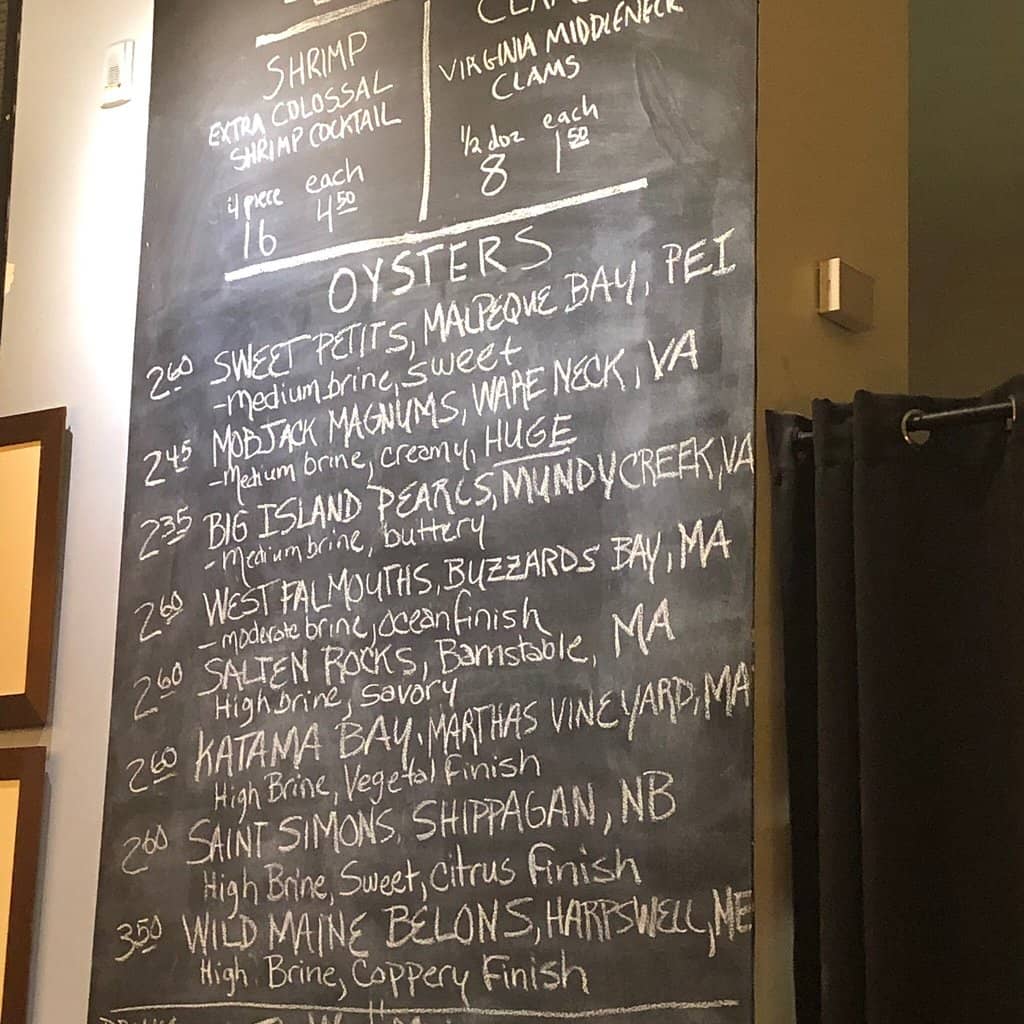 SHRIMP
EXTRA COLOSSAL
SHRIMP COCKTAIL
4 piece each
16 4 50
CLAMS
VIRGINIA MIDDLENECK
CLAMS
1/2 doz each
8 1 50
OYSTERS
2 60 SWEET PETITS, MALPEQUE BAY, PEI
-medium brine, sweet
2 45 MOBJACK MAGNUMS, WARE NECK, VA
-Medium brine, creamy, HUGE
2 35 BIG ISLAND PEARLS, MUNDY CREEK, VA
-Medium brine, buttery
2 60 WEST FALMOUTHS, BUZZARDS BAY, MA
-moderate brine, ocean finish
2 60 SALTEN ROCKS, Barnstable, MA
High brine, savory
2 60 KATAMA BAY, MARTHAS VINEYARD, MA
High Brine, Vegetal Finish
2 60 SAINT SIMONS, SHIPPAGAN, NB
High Brine, Sweet, Citrus Finish
3 50 WILD MAINE BELONS, HARPSWELL, ME
High Brine, Coppery Finish